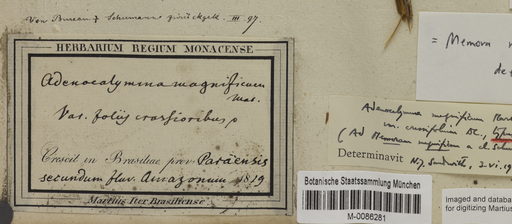 Von Bureau & Schumann zurückgeh. III. 97.
HERBARIUM REGIUM MONACENSE
Adenocalymna magnificum
Mas.
Var. foliis crassioribus
Crescit in Brasiliae prov. Paraënsis
secundum fluv. Amazonum 1819
Martius Iter Brasiliense
= Memora
Adenocalymna magnificum Mart
var. crassifolium DC.,
(Ad Memoram magnificam
Determinavit N.Y. Sandwith, 2.vi.19
Botanische Staatssammlung München
M-0086281
Imaged and databa
for digitizing Martius